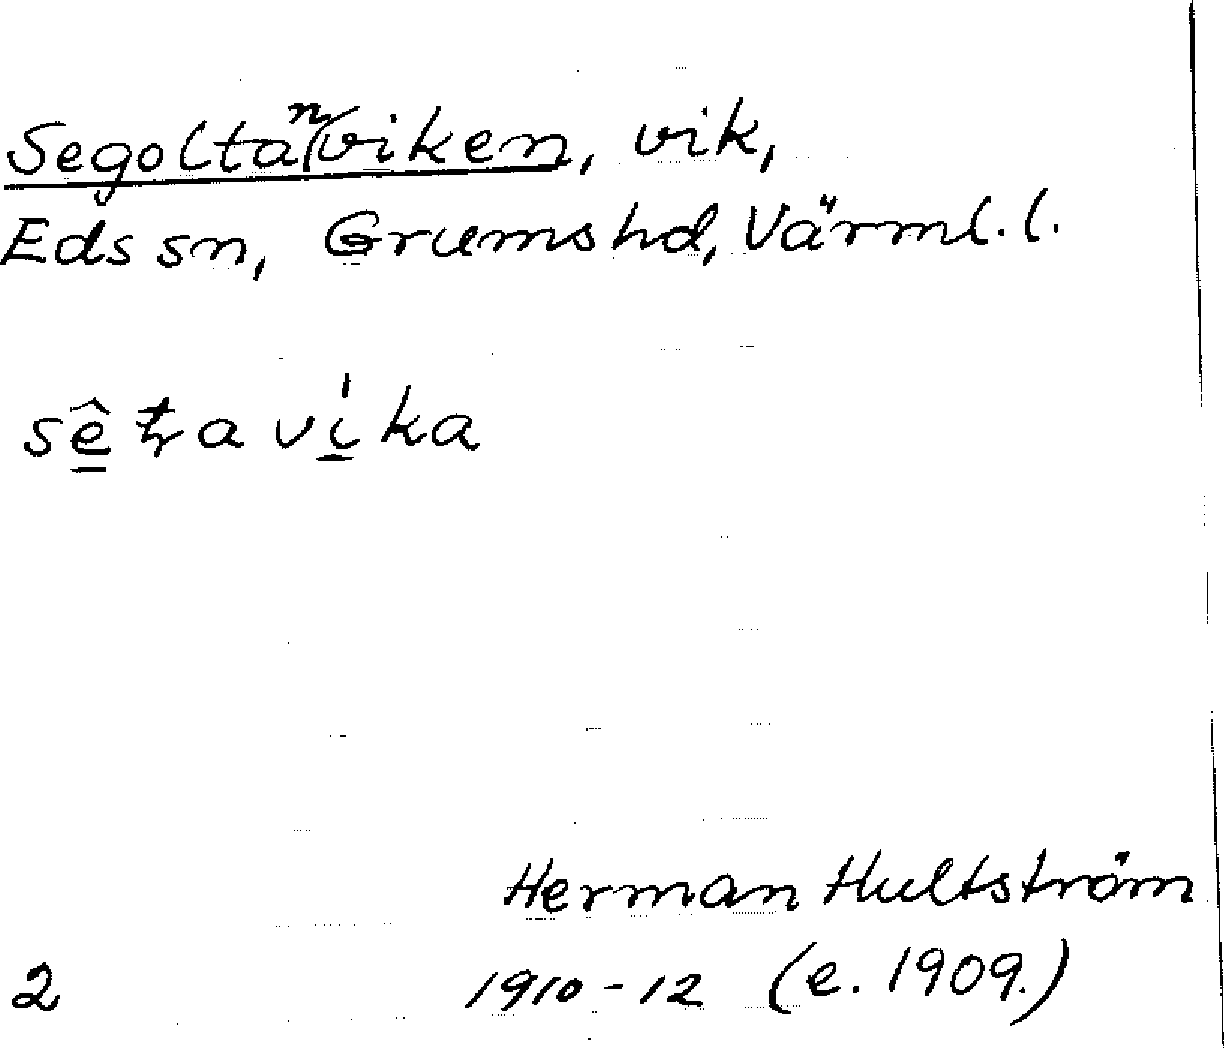 Segoltanviken, vik,
Eds sn, Grums hd, Värml. l.
vika
Herman Hultström
2 1910-12 (e. 1909.)